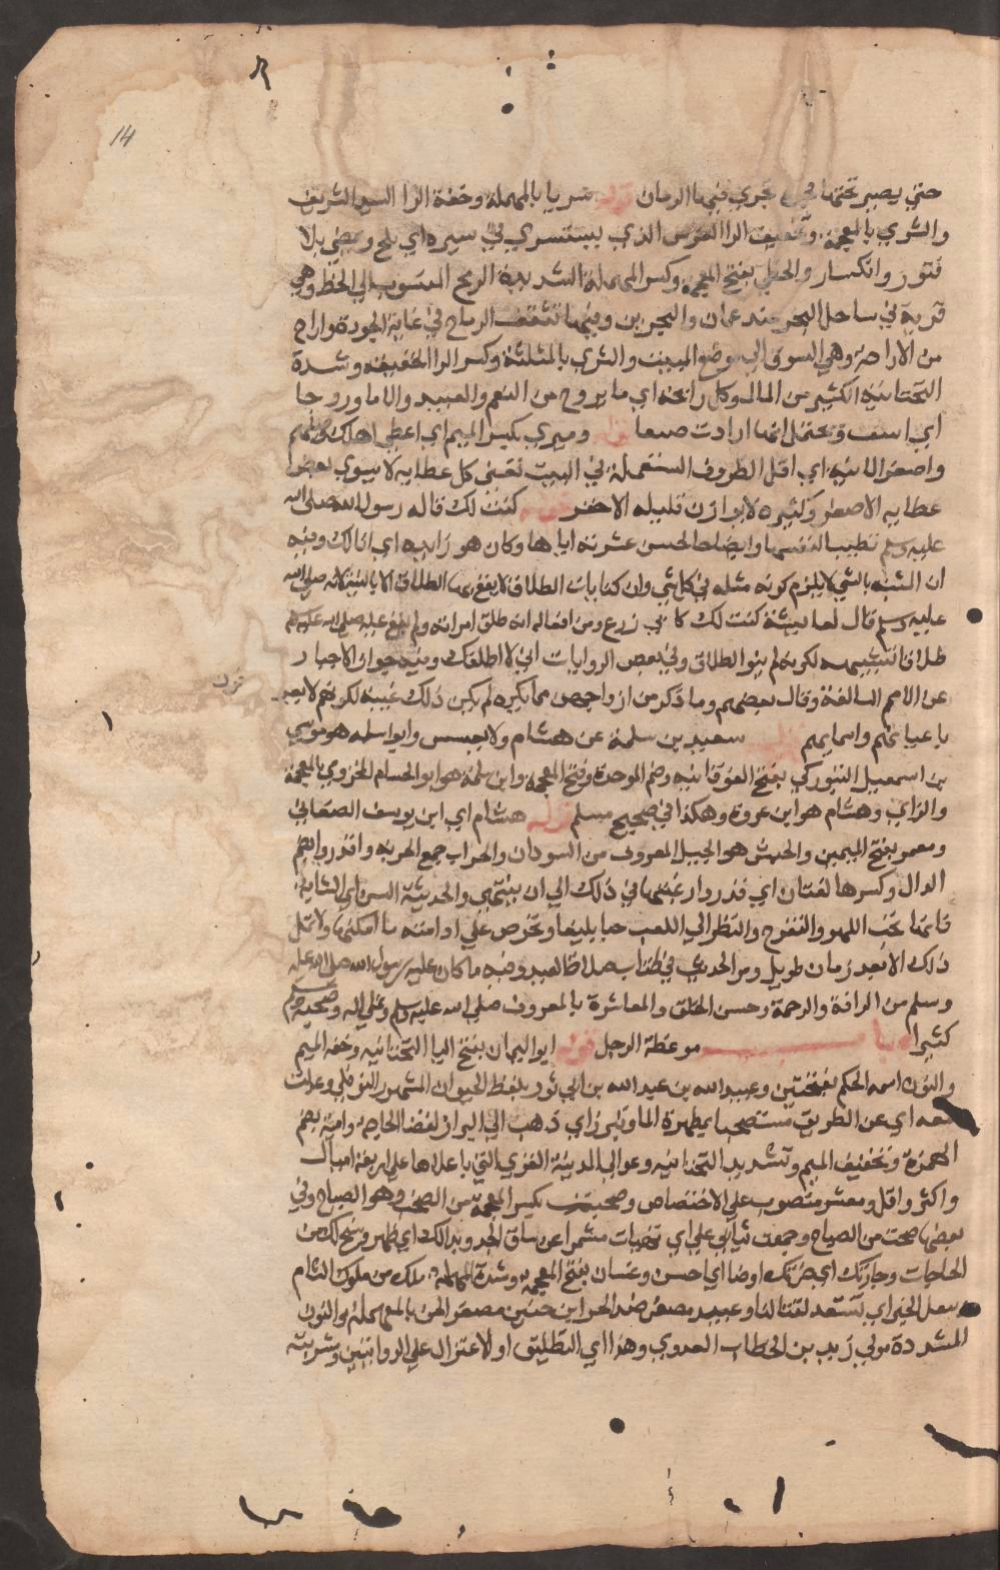 14
حتي يصير تحتها فجوة تجري فيها الرمان قوله شريا بالمهملة وخفة الرا السيد الشريف
والشري بالمعجمة وتخفيف الرا الفرس الذي يستسري في سيره اي يلح ويمضي بلا
فتور وانكسار والخطي بفتح المعجمة وكسر المهملة الشديدة الرمح المنسوب الي الخط وهي
قرية في ساحل البحر عند عمان والبحرين وفيها تثقف الرماح في غاية الجودة واراح
من الاراحة وهي السوق الي موضع المبيت والثري بالمثلثة وكسر الرا الخفيفة وشدة
التحتانية الكثير من المال وكل رائحة اي ما يروح من النعم والعبيد والاما وروجا
اي اسف ويحتمل انها ارادت صنعا قوله وميري بكسر الميم اي اعطي اهلك
واصغر الانية اي اقل الظروف المستعملة في البيت تعني كل عطايه لا يسوي بعض
عطايه الاصغر وكثيره لا يوازن قليله الاحقر قوله كنت لك قاله رسول الله صلي الله
عليه وسلم تطييبا لنفسها وايضاحا لحسن عشرته اياها وكان هو زايدة اي انا لك وفيه
ان الشبه بالشي لا يلزم كونه مثله في كل شي وان كنايات الطلاق لا يقع بها الطلاق الا بالنية لانه صلي الله
عليه وسلم قال لعايشة كنت لك كابي زرع ومن افعاله انه طلق امراته ولم يقع عليه صلي الله عليه وسلم
طلاق لتشبيهه لكونه لم ينو الطلاق وفي بعض الروايات اني لا اطلقك وفيه جواز الاخبار
عن الامم السالفة وقال بعضهم وما ذكر من ازواجهن مما يكره لم يكن ذلك غيبة لكونهم لا
باعيانهم واسمايهم قوله سعيد بن سلمة عن هشام ولا وابو اسلمه هو موسي
بن اسمعيل التبوركي بفتح الفوقانيه وضم الموحدة وفتح المعجمة وابن سلمة هو ابو الحسام المخزومي بالمعجمة
والزاي وهشام هو ابن عروة وهكذا في صحيح مسلم قوله هشام اي ابن يوسف الصنعاني
ومعمر بفتح الميمين والحبش هو الجيل المعروف من السودان والحراب جمع الحربه واقدروا بضم
الدال وكسرها لغتان اي قدروا رغبتها في ذلك الي ان تنتهي والحديثة السن اي الشابة
فانها تحب اللهو والتفرج والنظر الي اللعب حبا بليغا وتحرص علي ادامته ما امكنها ولا تمل
ذلك الا بعد زمان طويل ومر الحديث في كتاب صلاة العيد وفيه ما كان عليه رسول الله صلي الله عليه
وسلم من الرافة والرحمة وحسن الخلق والمعاشرة بالمعروف صلي الله عليه وسلم وعلي اله وصحبه وسلم
كثيرا باب موعظة الرجل قوله ابو اليمان بفتح اليا التحتانيه وخفة الميم
والنون اسمه الحكم بفتحتين وعبيد الله بن عبد الله بن ابي ثور بلفظ الحيوان المشهور النوفلي وعدلت
معه اي عن الطريق مستصحبا بمطهرة الما وتبرز اي ذهب الي البراز لقضا الحاجة وامية بضم
الهمزة وتخفيف الميم وتشديد التحتانيه وعوالي المدينة القري التي باعلاها علي اربعة اميال
واكثر واقل ومعشر منصوب علي الاختصاص وصخبت بكسر المعجمة من الصخب وهو الصياح وفي
بعضها صحت من الصياح وجمعت ثيابي علي اي تهيات مشمرا عن ساق الجد وبدا لك اي ظهر وسنح لك من
الحاجات وجارتك اي ضرتك اوضا اي احسن وغسان بفتح المعجمة وشدة المهملة ملك من ملوك الشام
وتنعل الخيل اي تستعد لقتالنا وعبيد مصغر ضد الحر ابن حنين مصغر الحن بالمهملة والنون
المشددة مولي زيد بن الخطاب العدوي وهذا اي التطليق او الاعتزال علي الروايتين ومشربة